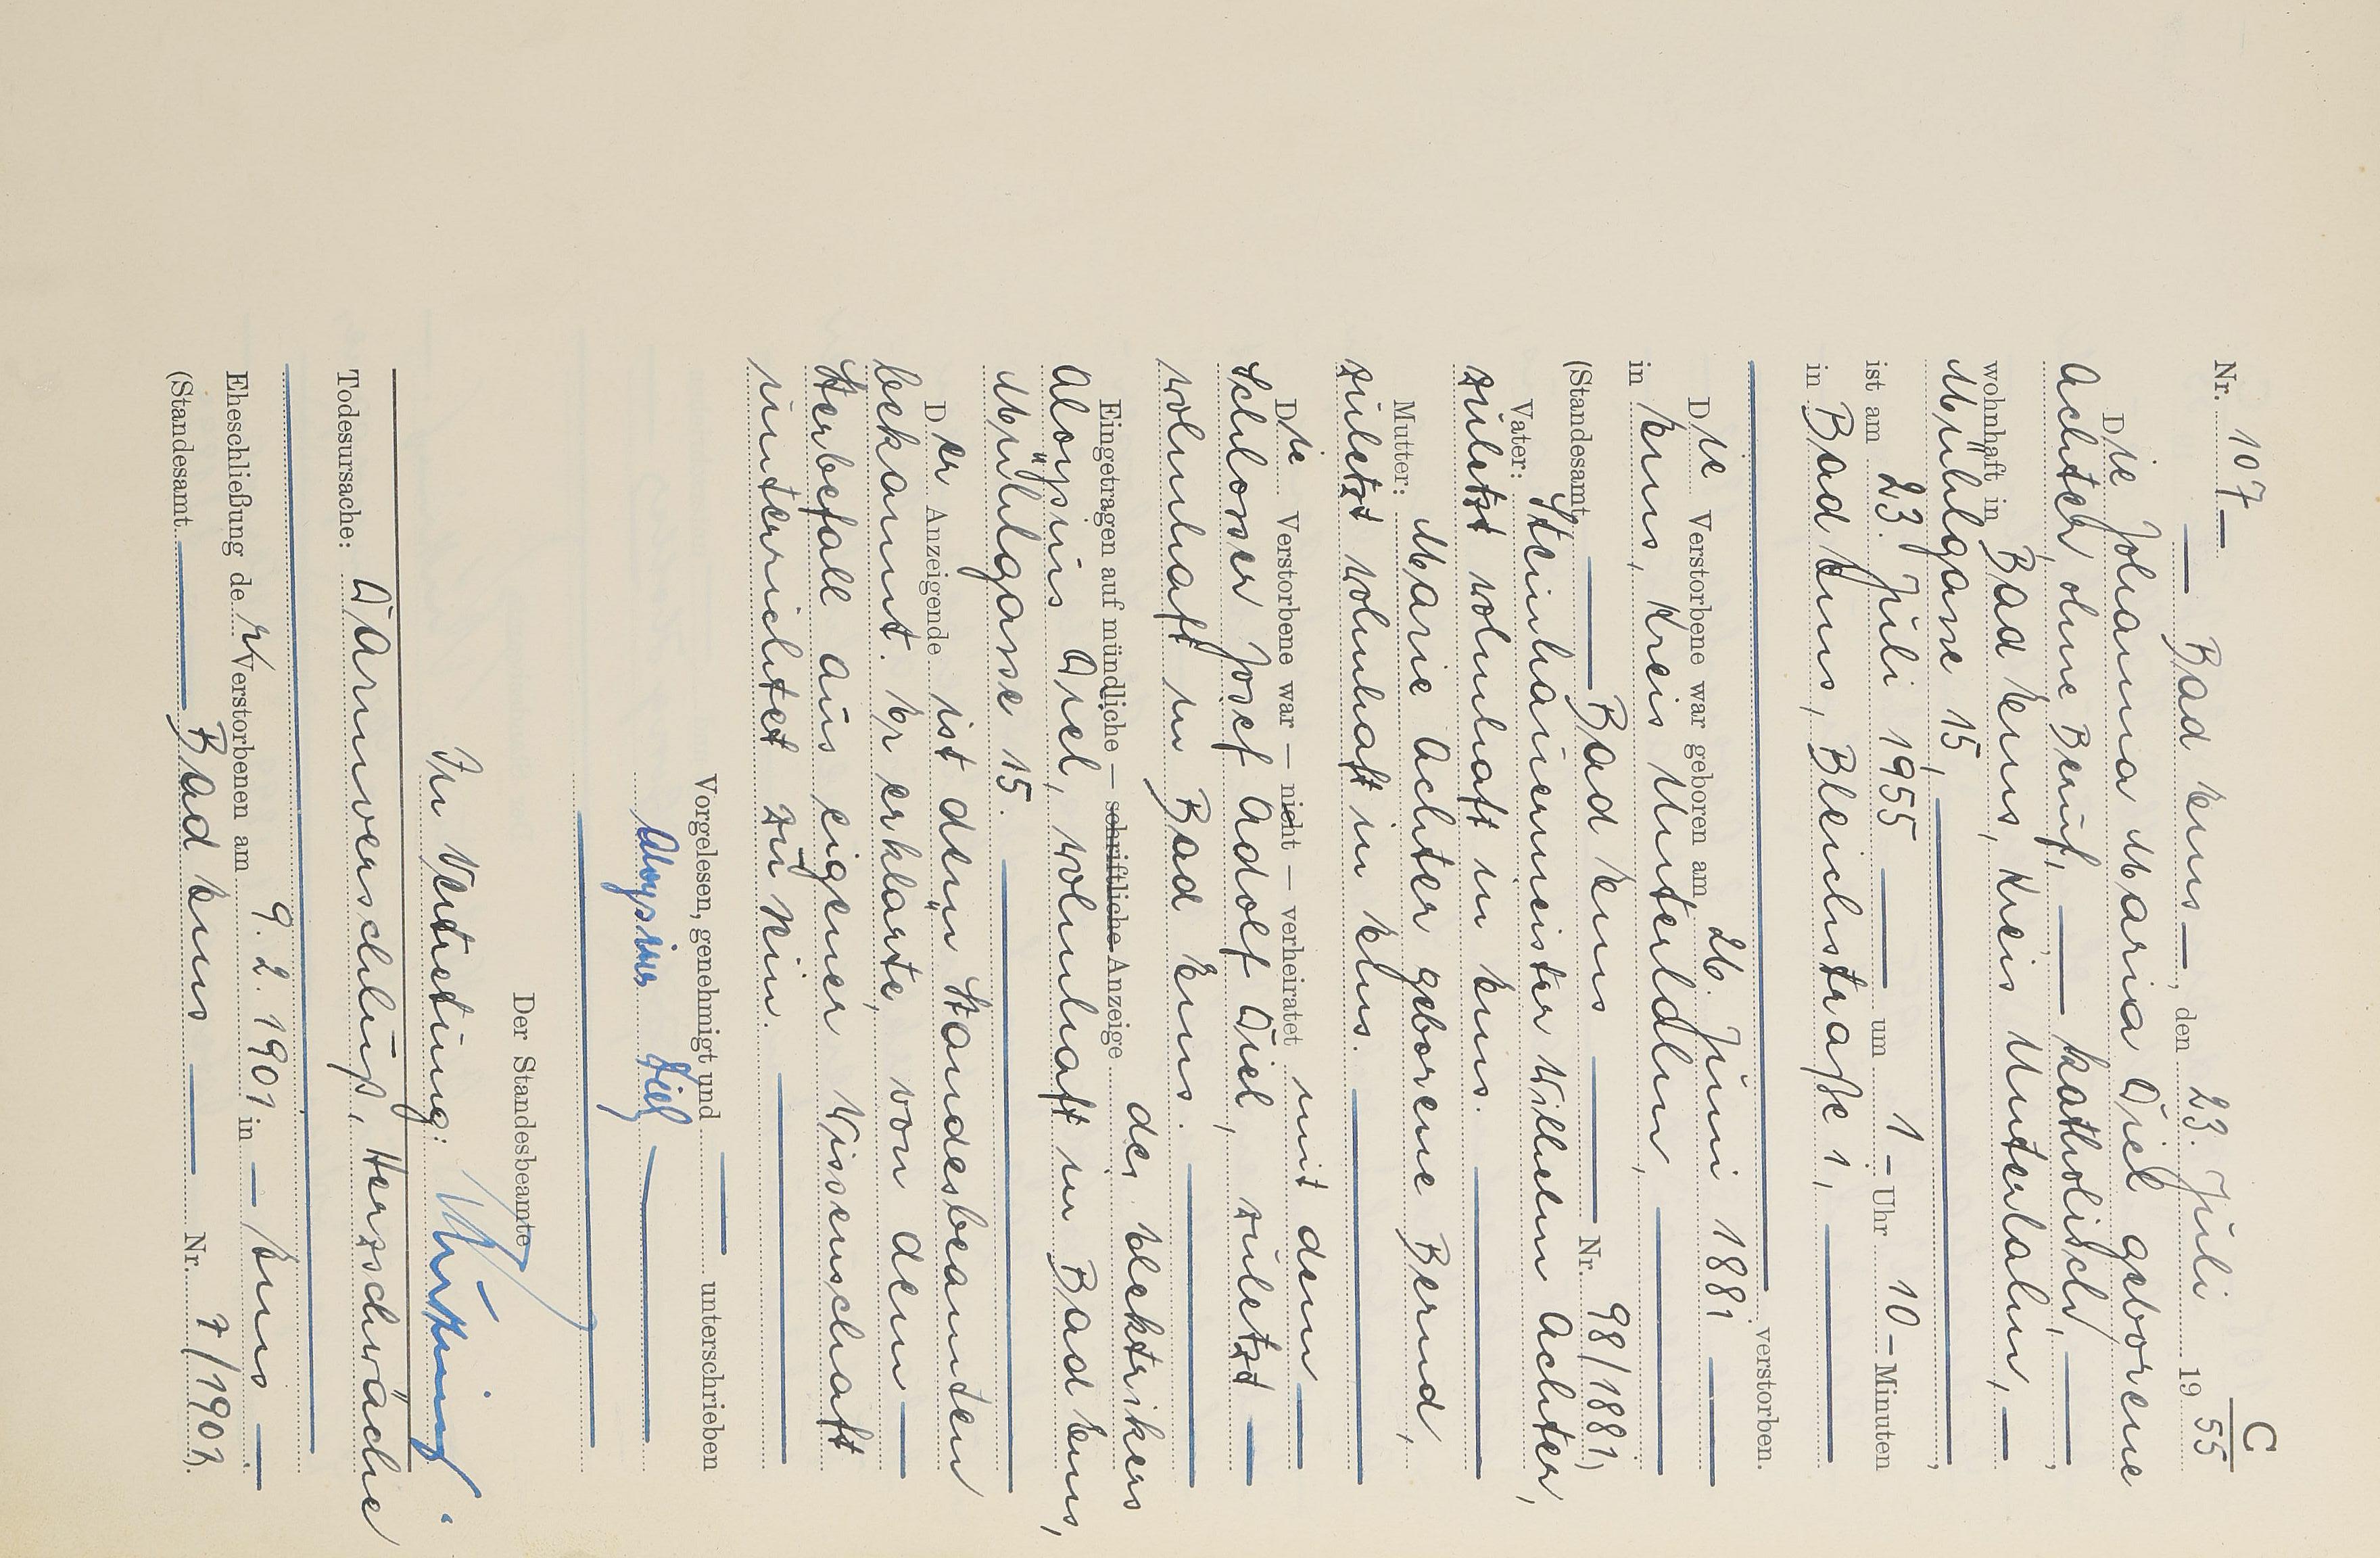 C
Nr. 107 —
— Bad Ems —, den 23. Juli 1955
Die Johanna Maria Diel geborene
Achter, ohne Beruf, — katholisch, —,
wohnhaft in Bad Ems, Kreis Unterlahn, —
Mühlgasse 15, —,
ist am 23. Juli 1955 — um 1 – Uhr 10 – Minuten
in Bad Ems, Bleichstraße 1, —
— verstorben.
Die Verstorbene war geboren am 26. Juni 1881 —
in Ems, Kreis Unterldhn, —
(Standesamt — Bad Ems — Nr. 98/1881)
Vater: Steinhauermeister Wilhelm Achter,
zuletzt wohnhaft in Ems. —
Mutter: Marie Achter geborene Bernd,
zuletzt wohnhaft in Ems. —
Die Verstorbene war — nicht — verheiratet mit dem —
Schlosser Josef Adolf Diel, zuletzt —
wohnhaft in Bad Ems. —
Eingetragen auf mündliche — schriftliche Anzeige des Elektrikers
Aloysius Diel, wohnhaft in Bad Ems,
Mühlgasse 15. —
Der Anzeigende ist dem Standesbeamten
bekannt. Er erklärte, von dem —
Sterbefall aus eigener Wissenschaft
unterrichtet zu sein. —
Vorgelesen, genehmigt und — unterschrieben
Aloysius Diel —
—
Der Standesbeamte
In Vertretung:
Todesursache: Darmverschluß, Herzschwäche
—
Eheschließung der Verstorbenen am 9. 2. 1901 in — Ems —
(Standesamt — Bad Ems — Nr. 7/1901).